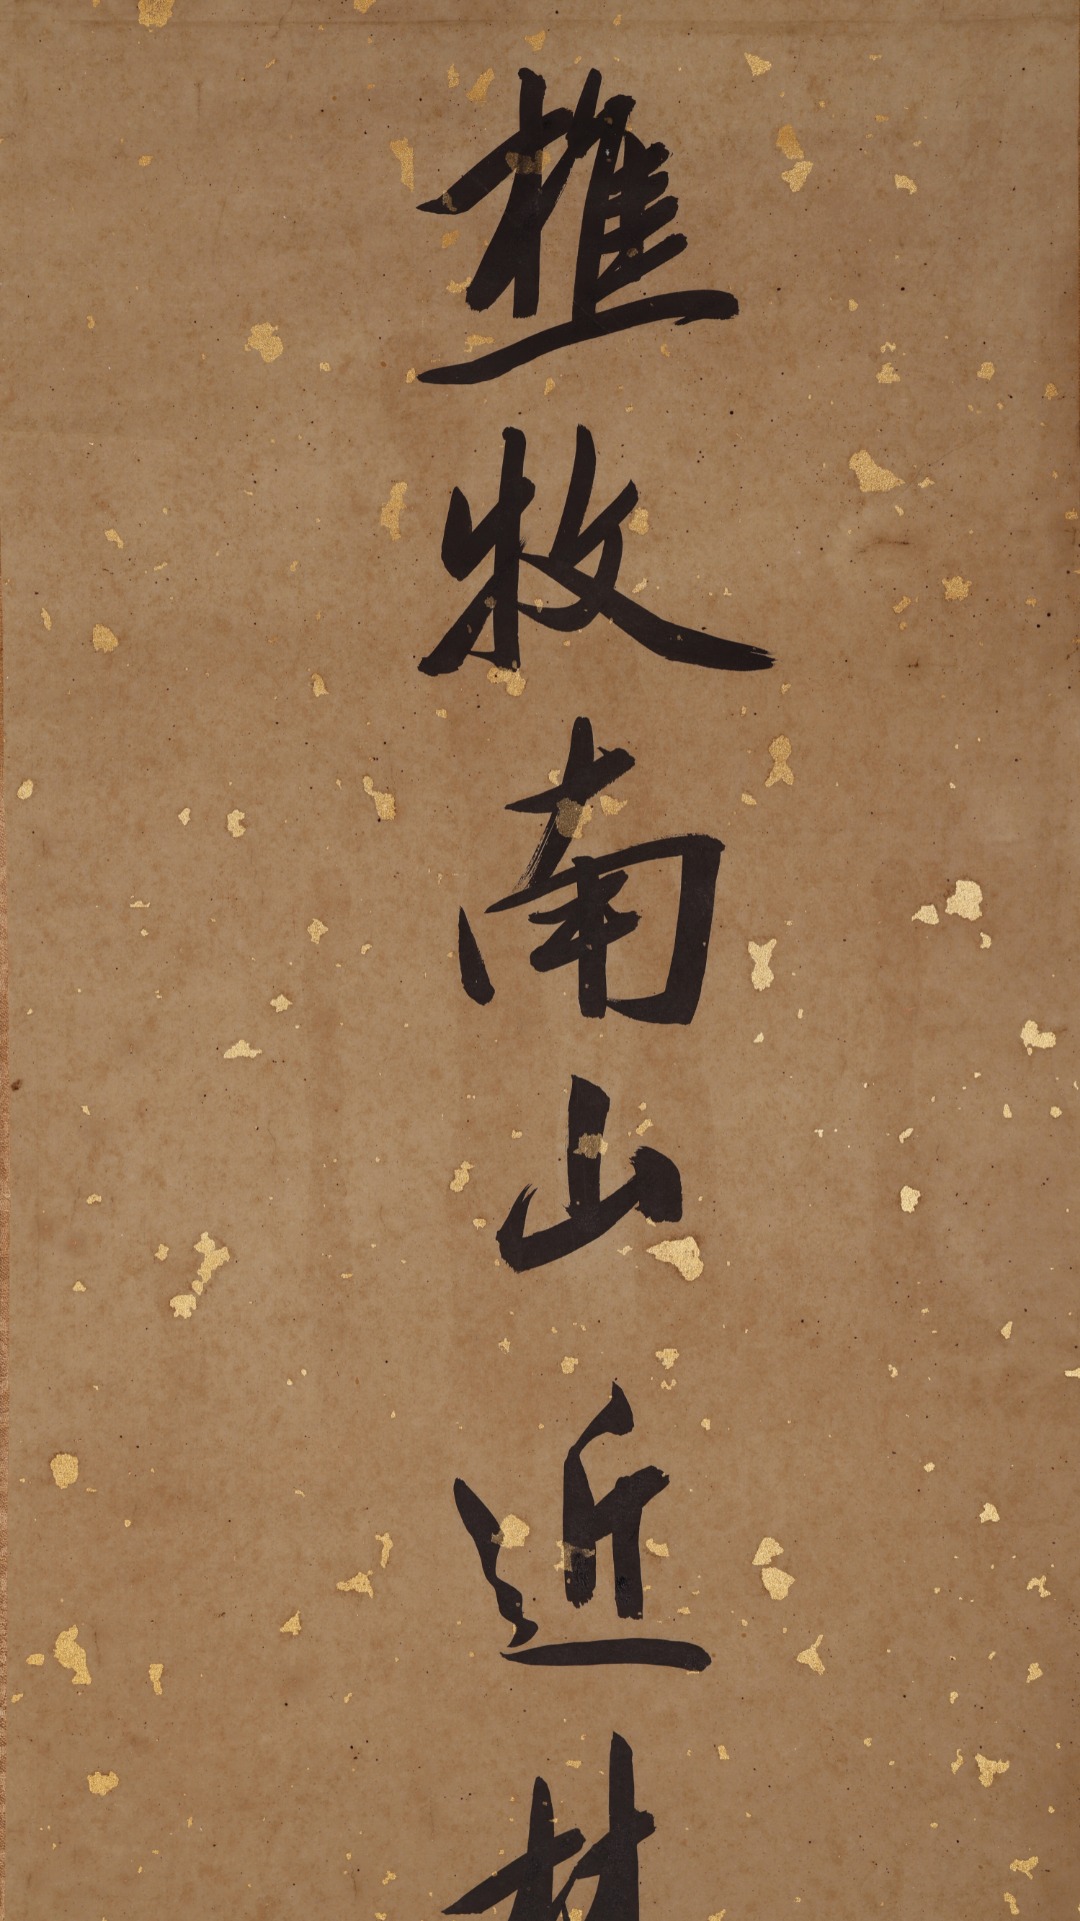 樵牧南山近